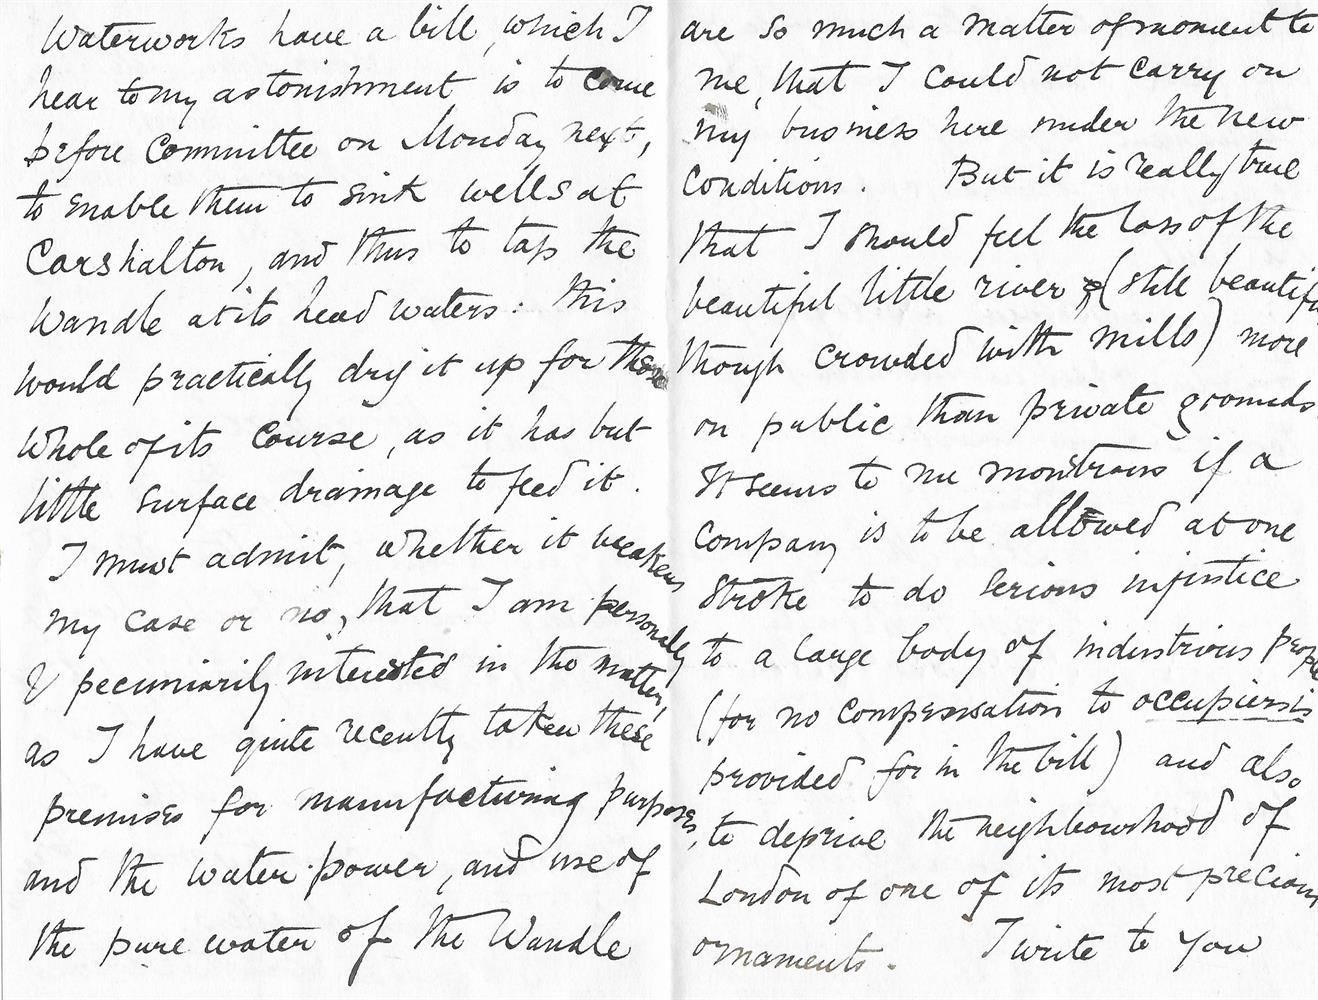 Waterworks have a bill, which I
hear to my astonishment is to come
before Committee on Monday next,
to enable them to sink wells at
Carshalton, and thus to tap the
Wandle at its head waters. This
would practically dry it up for the
whole of its course, as it has but
little surface drainage to feed it.
I must admit, whether it weakens
my case or no, that I am personally
& pecuniarily interested in the matter,
as I have quite recently taken these
premises for manufacturing purposes,
and the water-power, and use of
the pure water of the Wandle
are so much a matter of moment to
me, that I could not carry on
my business here under the new
conditions. But it is really true
that I should feel the loss of the
beautiful little river (still beautiful
though crowded with mills) more
on public than private grounds.
It seems to me monstrous if a
company is to be allowed at one
stroke to do serious injustice
to a large body of industrious people
(for no compensation to occupiers is
provided for in the bill) and also
to deprive the neighbourhood of
London of one of its most precious
ornaments. I write to you